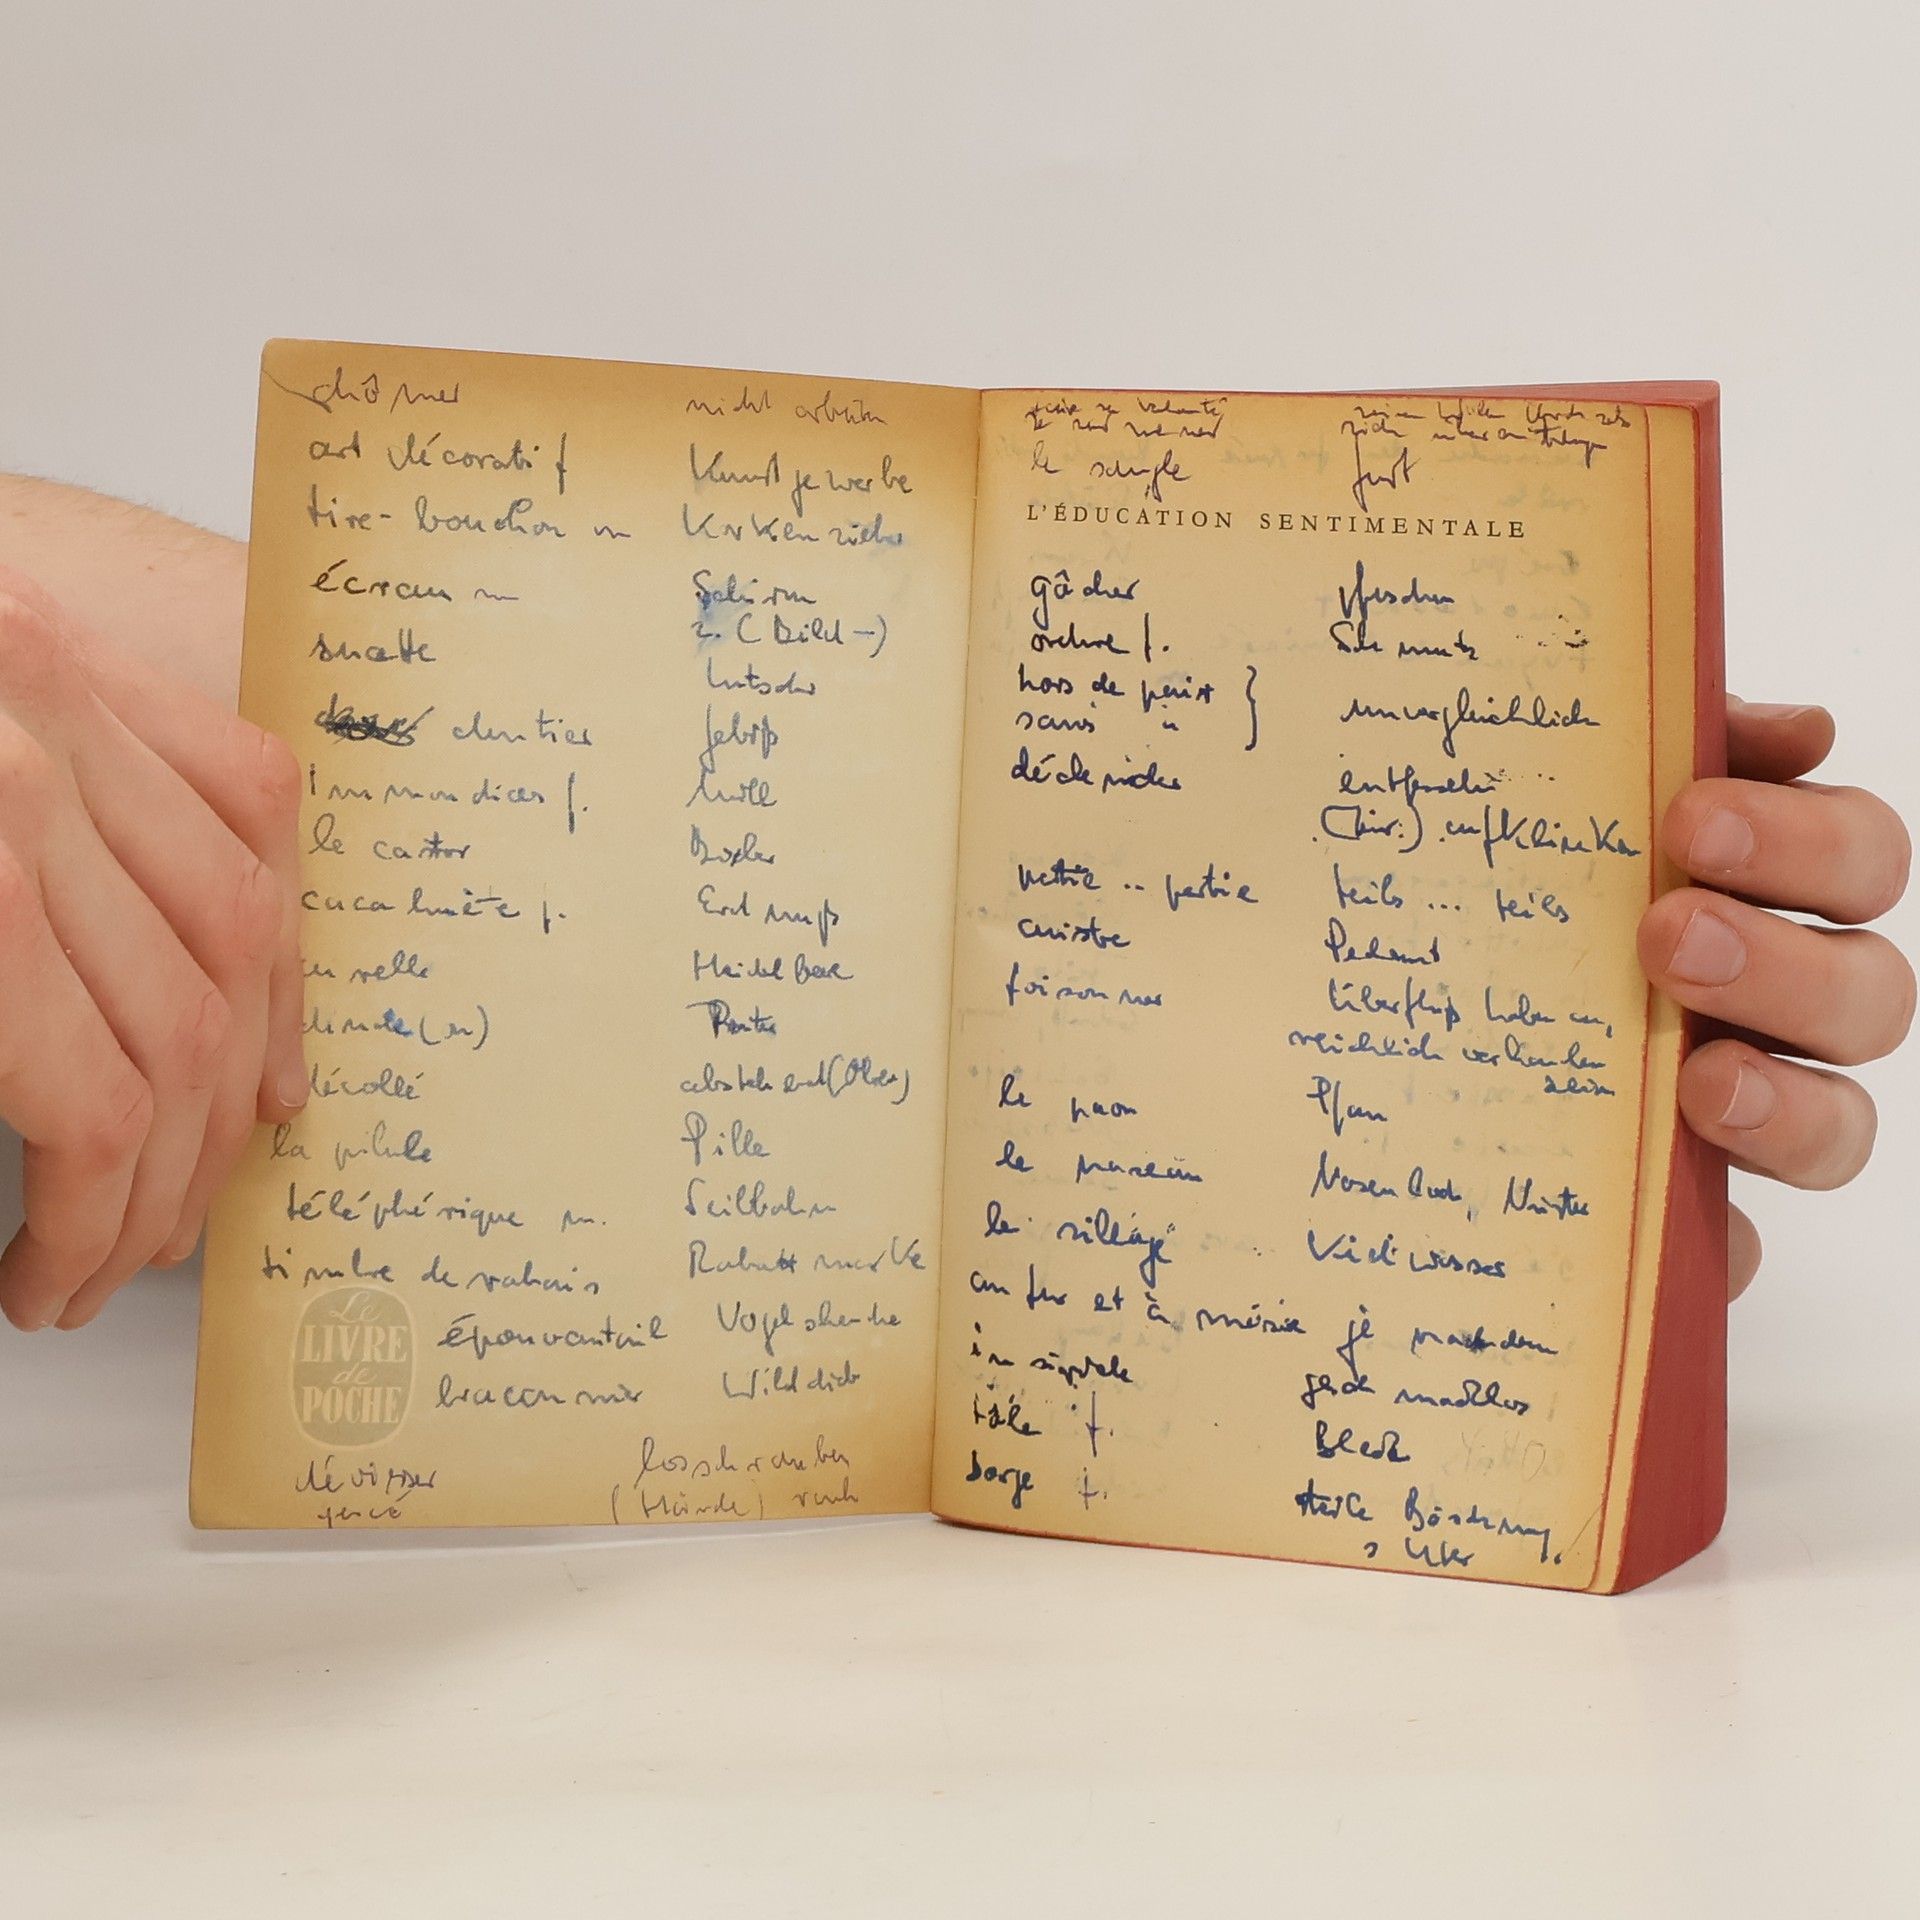 chômer nicht arbeiten
art décoratif Kunstgewerbe
tire-bouchon m Korkenzieher
écran m Schirm
2. (Bild-)
sucette Lutscher
dentier Gebiß
immondices f. Müll
le castor Biber
cacahuète f. Erdnuß
Heidelbeere
Puter
décollé abstehend (Ohren)
la pilule Pille
téléphérique m. Seilbahn
timbre de rabais Rabattmarke
épouvantail Vogelscheuche
braconnier Wilddieb
Le
LIVRE
de
POCHE
dévisser losschrauben
gercé (Hände) rauh
le sangle Gurt
L'ÉDUCATION SENTIMENTALE
gâcher pfuschen
ordure f. Schmutz
hors de pair
sans " unvergleichlich
entfesseln
aufklinken
partie .. partie teils ... teils
cuistre Pedant
foisonner Überfluß haben an,
reichlich vorhanden
sein
le paon Pfau
le naseau Nasenloch, Nüster
le sillage Kielwasser
au fur et à mesure je nachdem
insipide geschmacklos
tôle f. Blech
berge f. steile Böschung,
s Ufer